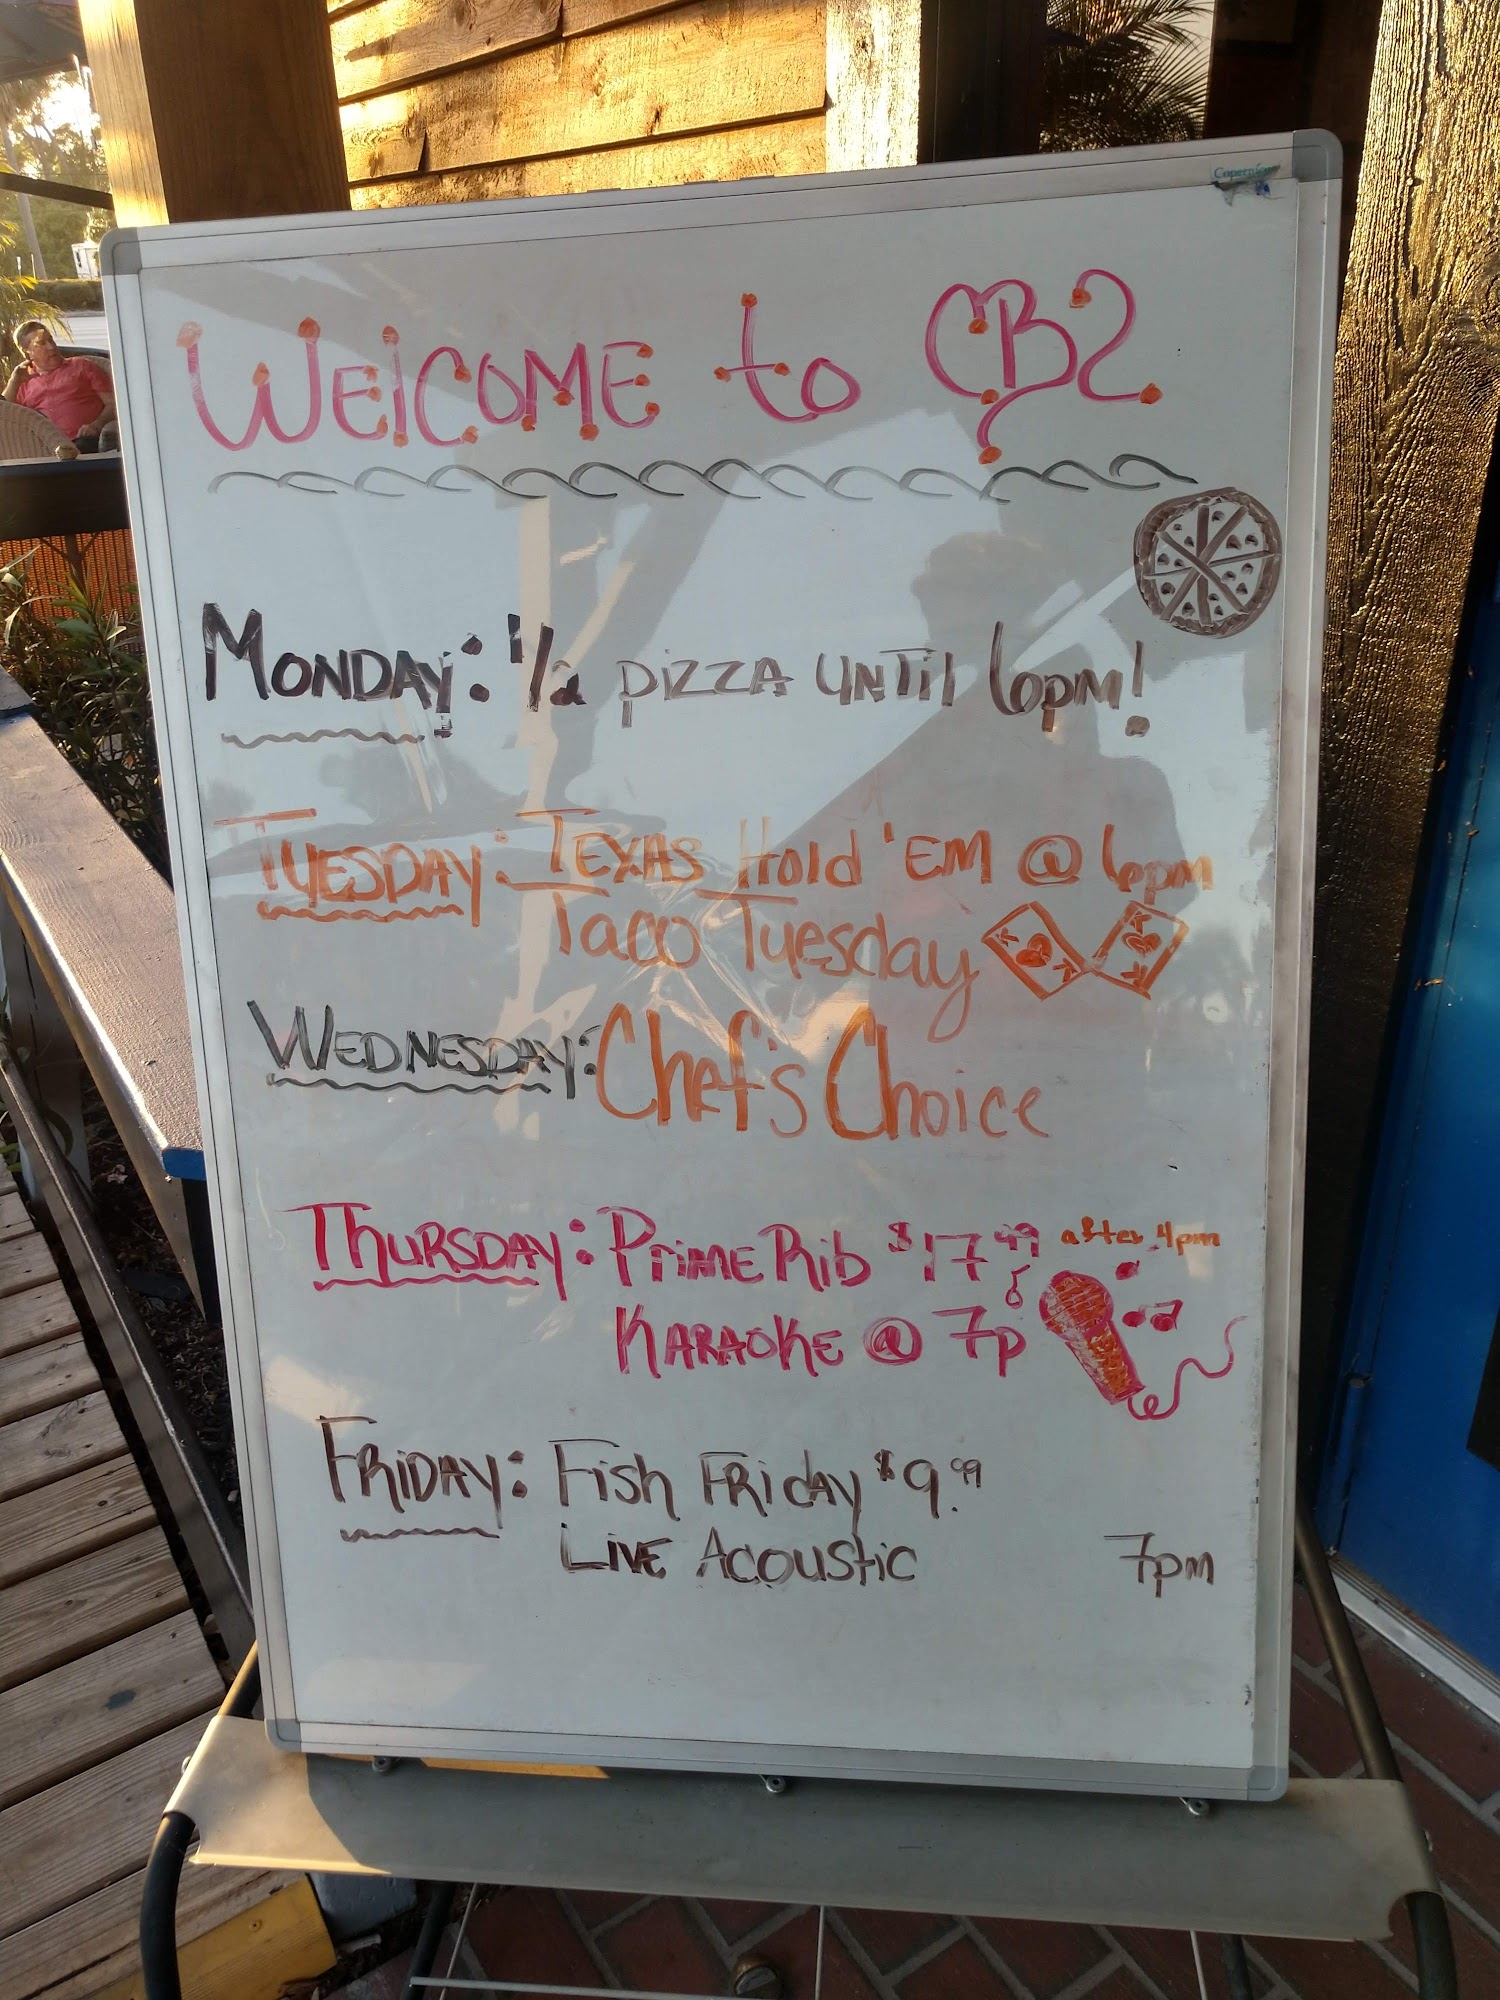 Copernicus
WELCOME to CB2
MONDAY: 1/2 PIZZA UNTIL 6PM!
TUESDAY: TEXAS Hold 'EM @ 6pm
Taco Tuesday
K K K K
WEDNESDAY: Chef's Choice
THURSDAY: PRIME Rib $17.99 after 4pm
KARAOKE @ 7p
FRIDAY: Fish FRIdAY $9.99
LIVE ACOUStic 7pm